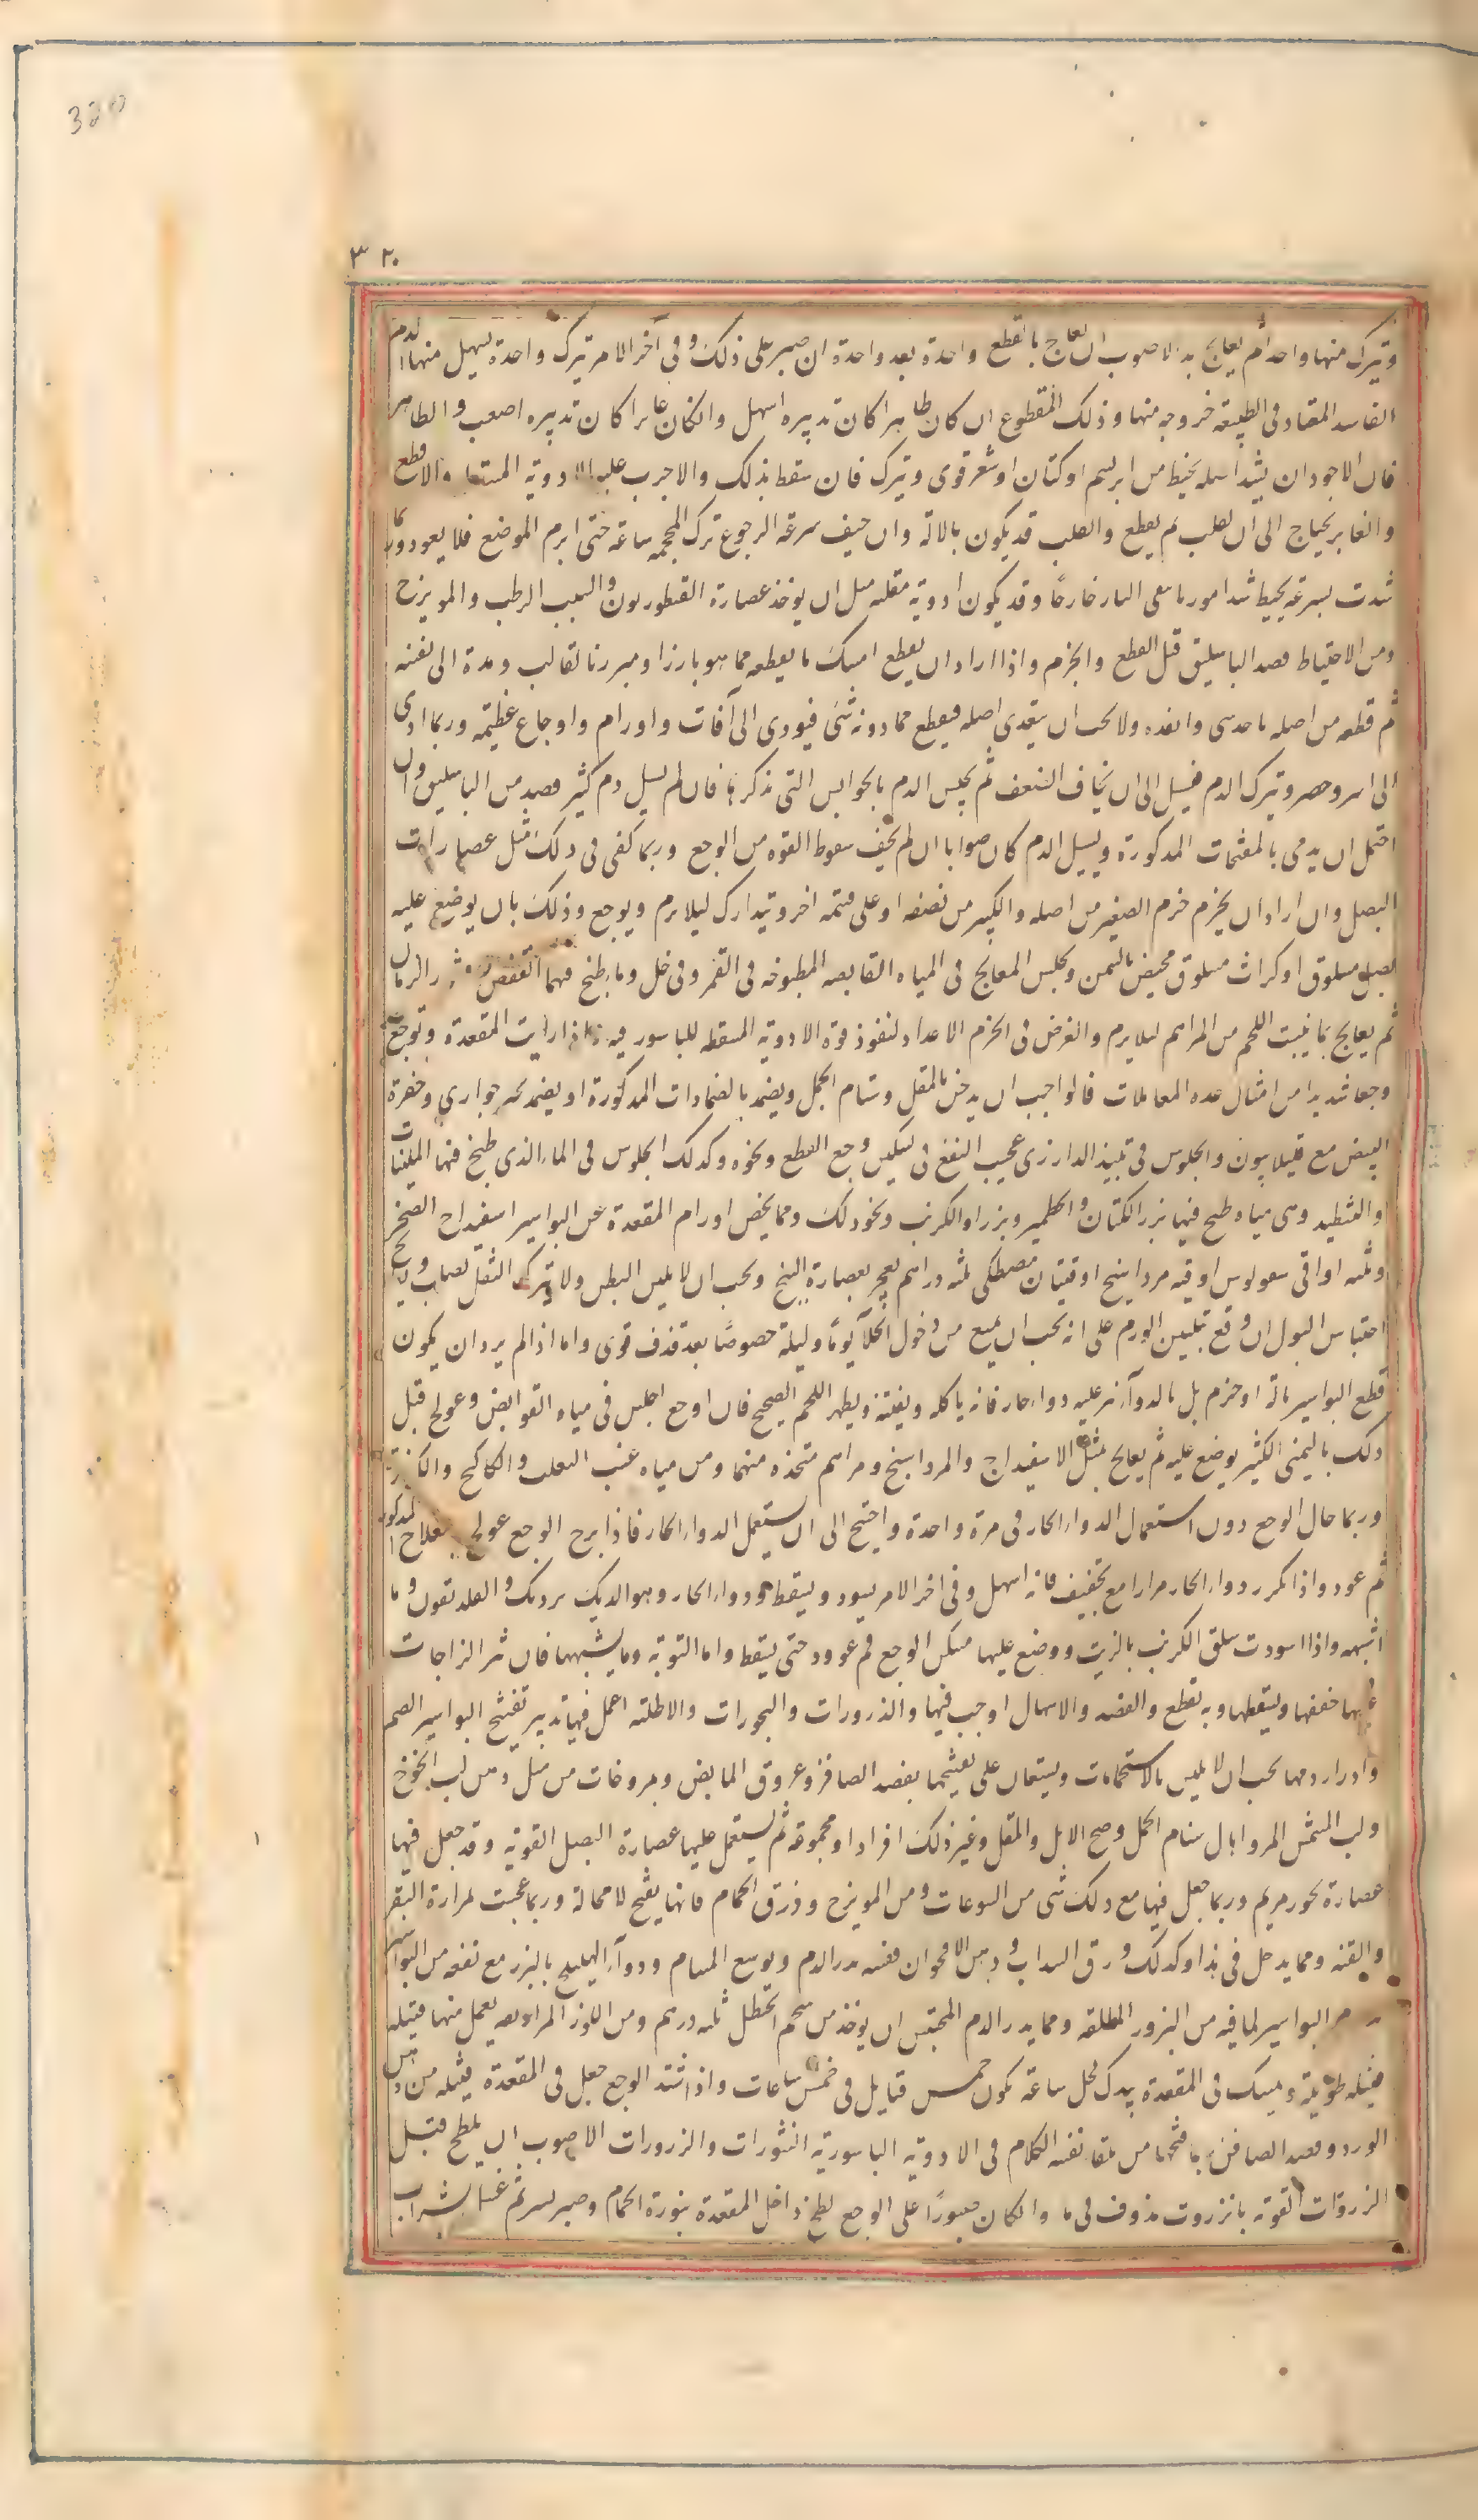 320
٣٢٠
ويترك منها واحدا ثم يعالج بد الاصوب ان يعالج بالقطع واحدة بعد واحدة ان صبر على ذلك وفى آخر الامر يترك واحدة يسيل منها الدم
الفاسد المعتاد فى الطبيعة خروجه منها وذلك المقطوع ان كان ظاهرا كان تدبيره اسهل وان كان غايرا كان تدبيره اصعب والظاهر
فان الاجود ان يشد اصله بخيط من ابريسم او كتان او شعر قوى ويترك فان سقط بذلك والا جرب عليه الادوية المسقطة والا قطع
والغاير يحتاج الى ان يقلب ثم يقطع والقلب قد يكون بالالة وان خيف سرعة الرجوع ترك المحجمة ساعة حتى ابرم الموضع فلا يعود وربما
شدت بسرعة بخيط شدا مورما يبقى الباسور خارجا وقد يكون ادوية مقلبة مثل ان يوخذ عصارة القنطوريون والشب الرطب والمويزج
ومن الاحتياط فصد الباسليق قبل القطع والخزم واذا اراد ان يقطع امسك ما يقطعه مما هو بارز او مبرز بالقالب ومده الى نفسه
ثم قطعه من اصله باحد شى وانفذه ولا يجب ان يتعدى اصله فيقطع مما دونه شى فيودى الى آفات واورام واوجاع عظيمة وربما ادى
الى اسر وحصر ويترك الدم يسيل الى ان يخاف الضعف ثم يحبس الدم بالحوابس التى نذكرها فان لم يسل دم كثير فصد من الباسليق وان
احتمل ان يدمى بالمفتحات المذكورة ويسيل الدم كان صوابا ان لم يخف سقوط القوة من الوجع وربما كفى فى ذلك مثل عصارات
البصل وان اراد ان يخزم خزم الصغير من اصله والكبير من نصفه او على قسمة اخر ويتدارك ليلا يرم ويوجع وذلك بان يوضع عليه
بصل مسلوق او كراث مسلوق مخيض بالسمن ويجلس المعالج فى المياه القابضة المطبوخة فى القمر وفى خل وما طبخ فيهما العفص وقشور الرمان
ثم يعالج بما ينبت اللحم من المراهم ليلا يرم والغرض فى الخزم الاعداد لنفوذ قوة الادوية المسقطة للباسور فيه فاذا رايت المقعدة وتوجع
وجعا شديدا من امثال هذه المعاملات فالواجب ان يدخن بالمقل وسنام الجمل ويضمد بالضمادات المذكورة او يضمد بخبز حوارى وصفرة
البيض مع قليل افيون والجلوس فى نبيذ الدارزى عجيب النفع فى تسكين وجع القطع ونحوه وكذلك الجلوس فى الماء الذى طبخ فيها الملينات
والشطيه وهى مياه طبخ فيها بزر الكتان والخطمى وبزر والكرنب ونحو ذلك ومما يخص اورام المقعدة عن البواسير اسفيداج
وثلثة اواقى اوقية مرداسنج اوقيتان مصطكى ثلثة دراهم يعجن بعصارة البنج ويجب ان لا يلبس البطن ولا يترك الثفل يصلب
احتباس البول ان وقع تليين الورم على انه يجب ان يمنع من دخول الخلا يوما وليلة خصوصا بعد قذف قوى واما اذا لم يرد ان يكون
قطع البواسير بالة او خزم بل بالدوا نثر عليه دواء حار فانه ياكله ويفتته ويظهر اللحم الصحيح فان اوجع اجلس فى مياه القوابض وعولج قبل
ذلك بالسمن الكثير يوضع عليه ثم يعالج بمثل الاسفيداج والمرداسنج ومراهم متخذه منهما ومن مياه عنب الثعلب والكاكنج والكزبرة
وربما حال الوجع دون استعمال الدواء الحار فى مرة واحدة واحتيج الى ان يستعمل الدواء الحار فاذا برح الوجع عولج بعلاج المذكور
ثم عوود واذا كرر دواء الحار مرارا مع تخفيف فانه اسهل وفى اخر الامر يسود ويسقط ودواء الحار وهو الديك برديك والفلدفيون وما
اشبهه واذا اسودت سلق الكرنب بالزيت ووضع عليها مسكن الوجع ثم عوود حتى يسقط واما التوتية وما يشبهها فان نثر الزاجات
عليها جففها ويسقطها وبه تقطع والفصد والاسهال اوجب فيها والذرورات والبخورات والاطلية اعمل فيها تدبير تفتيح البواسير الصم
وادرار دمها يجب ان لا يلبس بالاستحمامات ويستعان على تفتيحها بفصد الصافن وعروق المابض ومروخات من مثل دهن لب الخوخ
ولب المشمش المر وابال سنام الجمل ومخ الابل والمقل وغير ذلك افرادا ومجموعة ثم يستعمل عليها عصارة البصل القوية وقد جعل فيها
عصارة بخور مريم وربما جعل فيها مع ذلك شى من اليتوعات ومن المويزج وذرق الحمام فانها يفتح لا محالة وربما عجنت بمرارة البقر
والقنه ومما يدخل فى هذا وكذلك ورق السداب ودهن الاقحوان نفسه يدر الدم ويوسع المسام ودواء الهليلج بالبزر مع نفعه من البواسير
البواسير لما فيه من البزور الملطفة ومما يدر الدم المحتبس ان يوخذ من شحم الحنظل ثلثة درهم ومن اللوز المر اربعة يعمل منها فتيلة
فتيلة طويلة ويمسك فى المقعدة يبدل كل ساعة يكون خمس فتايل فى خمس ساعات واذا اشتد الوجع جعل فى المقعدة فتيلة من دهن
الورد وفصد الصافن ربما فتحها من تلقا نفسه الكلام فى الادوية الباسورية النثورات والذرورات الاصوب ان يلطخ قبل
الذرورات القوية بانزروت مذوف فى ماء وان كان صبورا على الوجع لطخ داخل المقعدة بنورة الحمام وصبر يسيرا ثم غسل بشراب